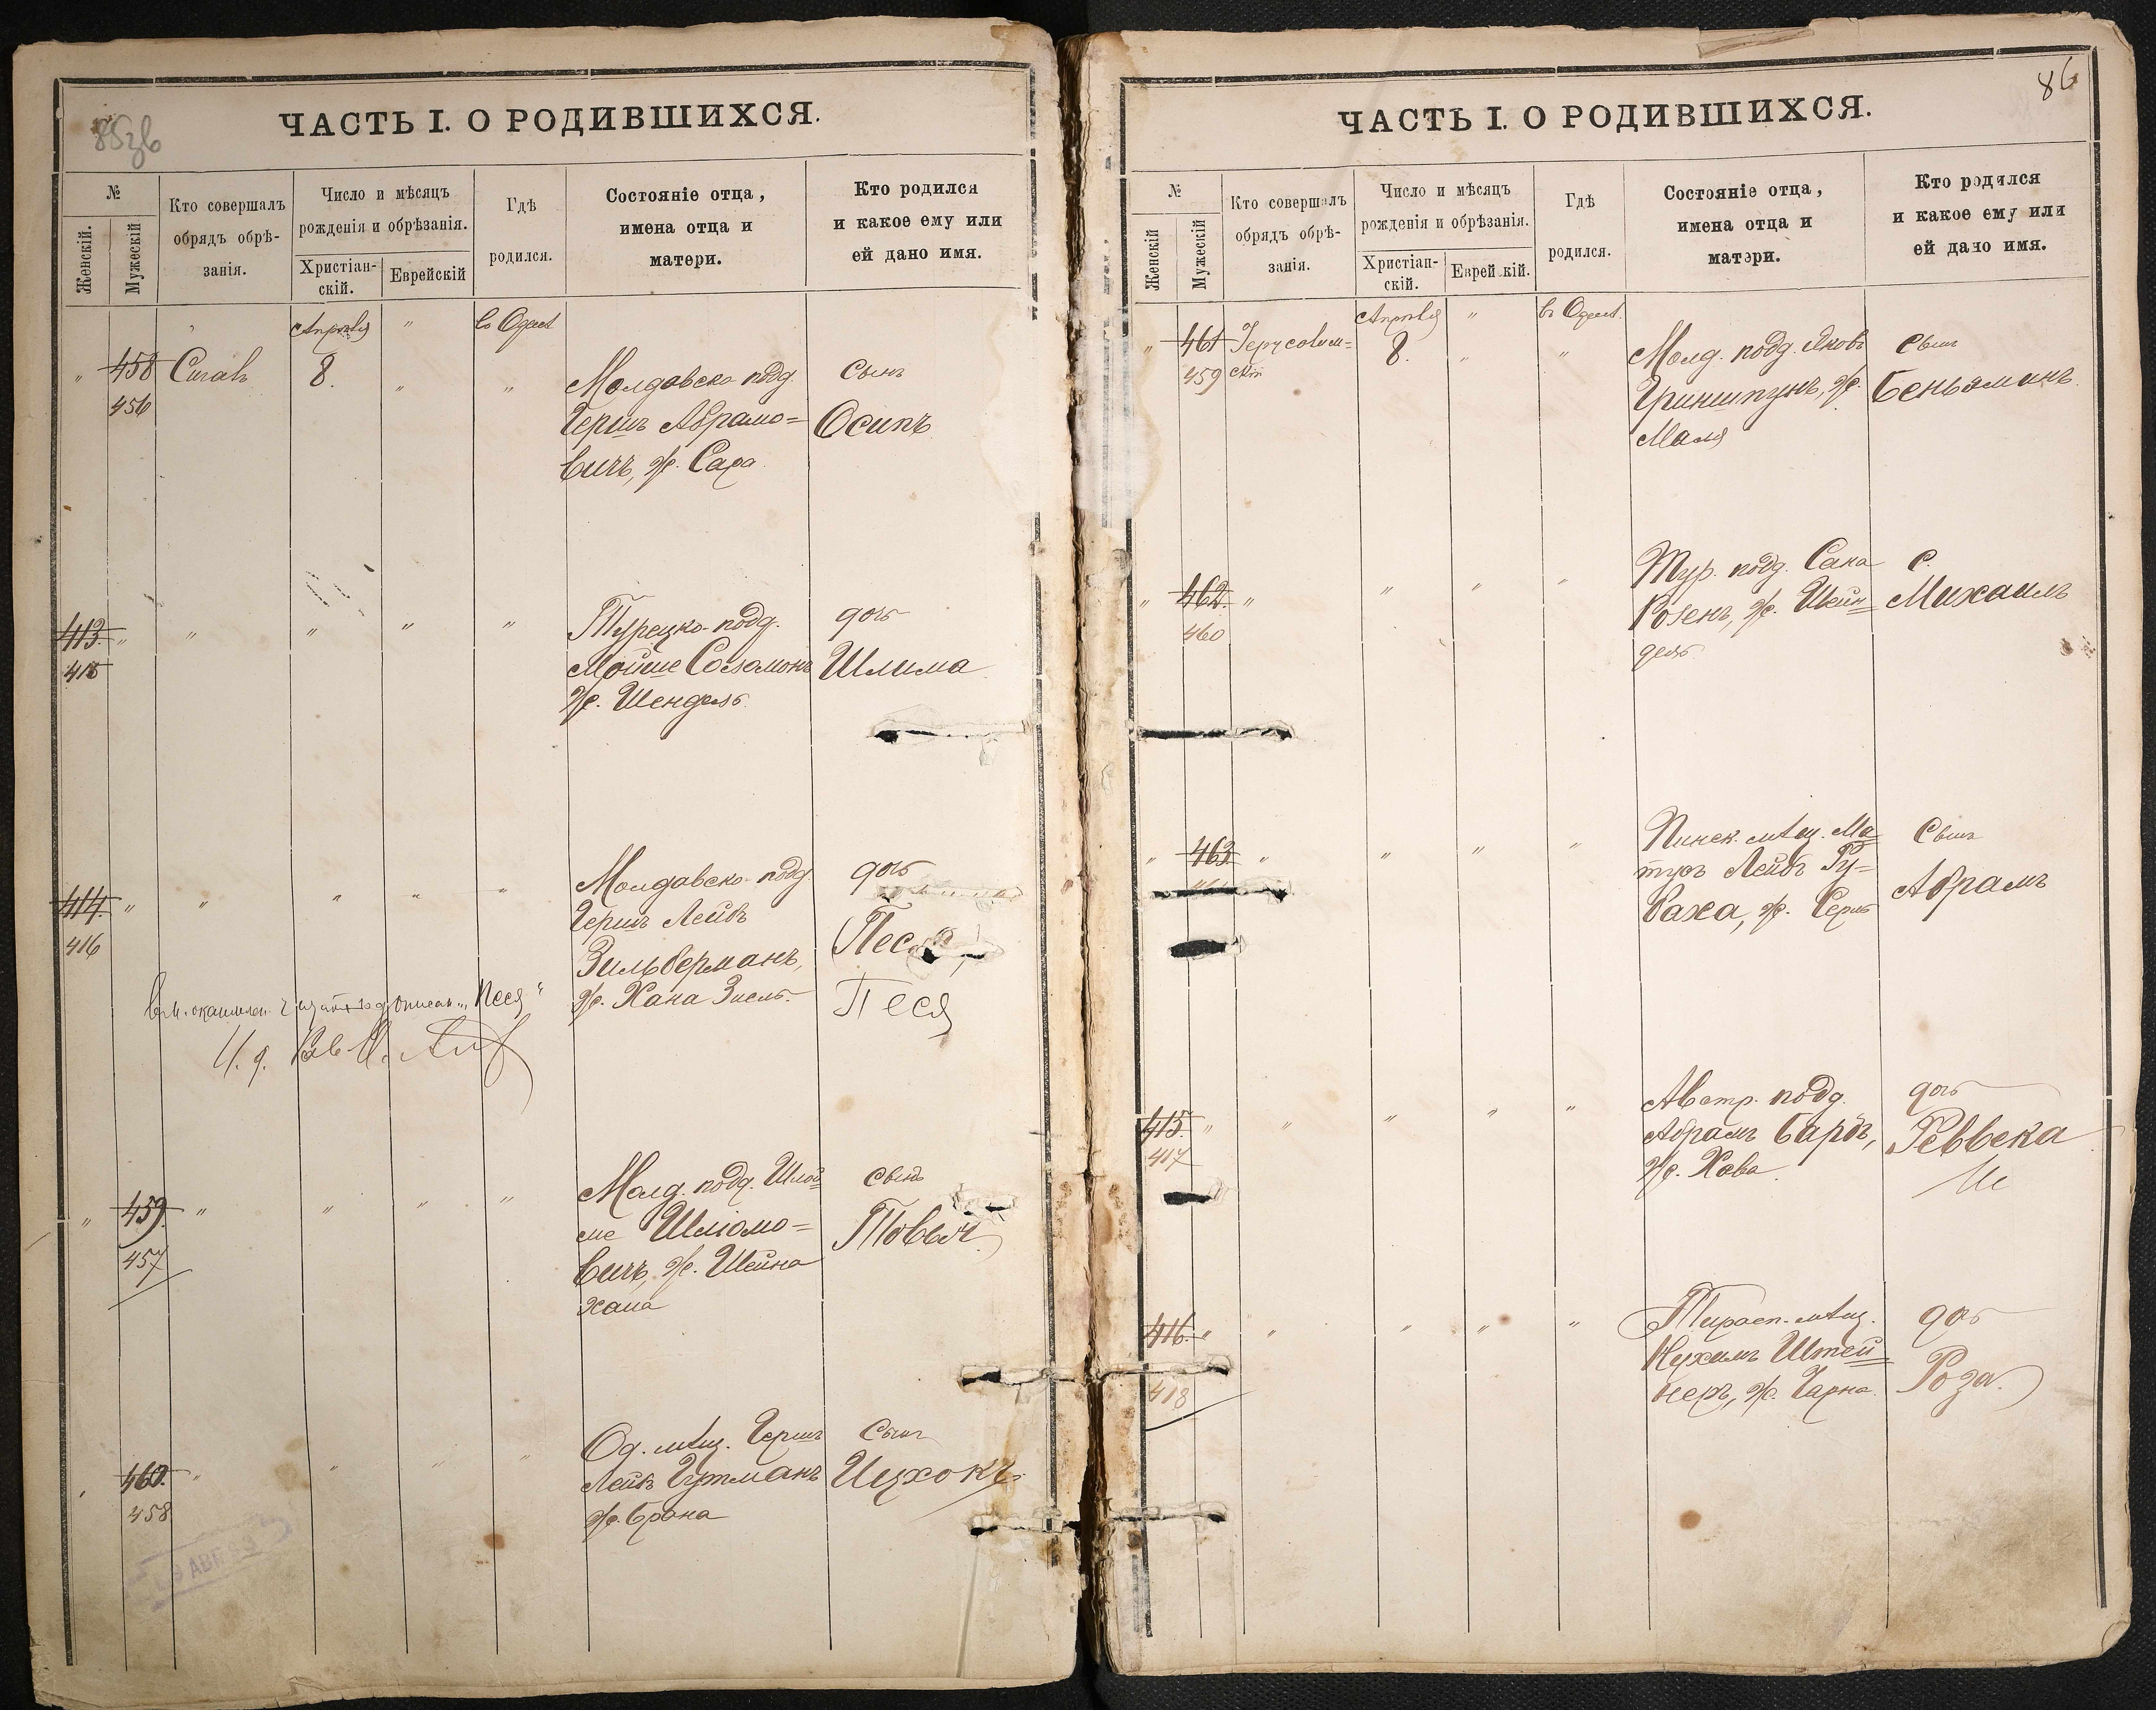 85зв
ЧАСТЬ I. О РОДИВШИХСЯ.
№
Женскій.
Мужескій
Кто совершалъ
обрядъ обрѣ-
занія.
Число и мѣсяцъ
рожденія и обрѣзанія.
Христіан-
скій.
Еврейскій
Гдѣ
родился.
Состояніе отца,
имена отца и
матери.
Кто родился
и какое ему или
ей дано имя.
Апрѣля " въ Одессѣ
" 458 8. " "
456
Молдавско-подд.
Гершъ Абрамо=
вичъ, ж. Сара
Сынъ
Осипъ
413. " " " " "
415
Турецко-подд.
Мойше Соломонъ
ж. Шендель
дочь
Шлима
414. " " " " "
416
Молдавско-подд.
Гершъ Лейбъ
Зильберманъ,
ж. Хана Зисль
дочь
Песя
Песя
"Песя"
И. д.
" 459. " " " "
457
Молд. подд. Шлой=
ме Шліомо=
вичъ, ж. Шейна
Хана
Сынъ
Товья
460. " " " "
458
Од. мѣщ. Гершъ
Лейбъ Гутманъ
ж. Брана
Сынъ
Ицхокъ
86
ЧАСТЬ I. О РОДИВШИХСЯ.
№
Женскій
Мужескій
Кто совершалъ
обрядъ обрѣ-
занія.
Число и мѣсяцъ
рожденія и обрѣзанія.
Христіан-
скій.
Еврейскій.
Гдѣ
родился.
Состояніе отца,
имена отца и
матери.
Кто родился
и какое ему или
ей дано имя.
Апрѣля " въ Одессѣ.
" 461 Іерусалим= 8. " "
459 скій
Молд. подд. Яковъ
Гриншпунъ, ж.
Маля
Сынъ
Беньяминъ.
" 462. " " " "
460
Тур. подд. Сана
Розенъ, ж. Шейн=
дель
С.
Михаилъ
" 463 " " " "
Пинск. мѣщ. Ма=
тусъ Лейбъ Ру=
баха, ж.
Сынъ
Абрамъ
415. " " " " "
417
Австр. подд.
Абрамъ Барбъ,
ж. Хава
дочь
Реввека
416. " " " " "
418
Тирасп. мѣщ.
Нухимъ Штей=
неръ, ж. Чарна.
дочь
Роза.